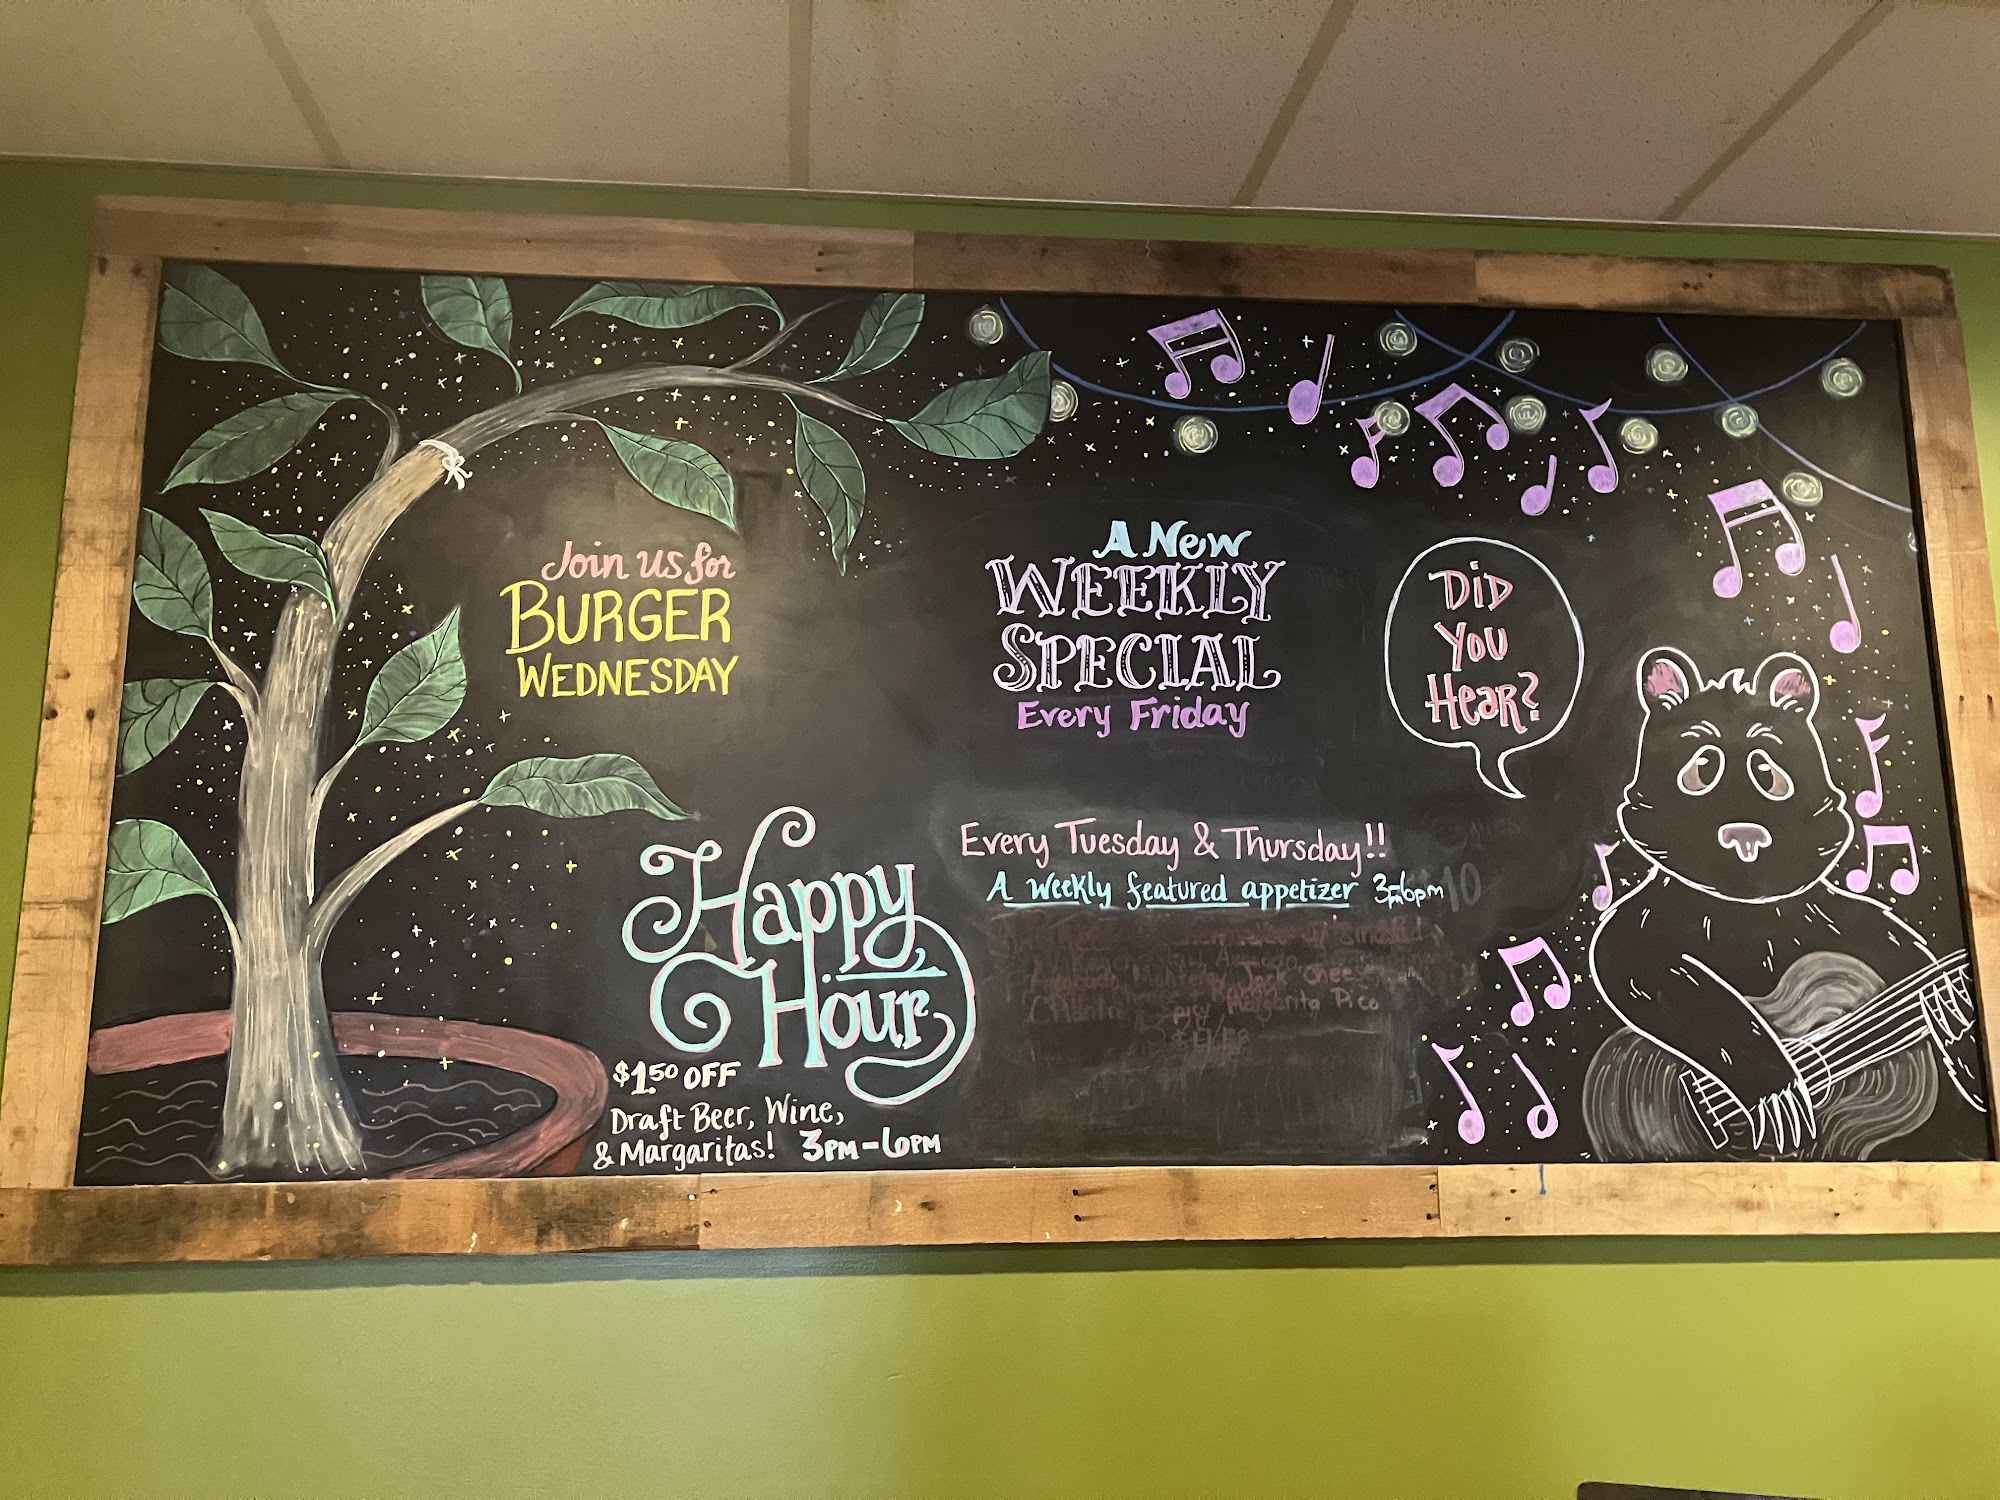 Join us for
BURGER
WEDNESDAY
A New
WEEKLY
SPECIAL
Every Friday
DiD
You
HeaR?
Happy
Hour
$1.50 OFF
Draft Beer, Wine,
& Margaritas! 3PM-6PM
Every Tuesday & Thursday!!
A Weekly featured appetizer 3-6pm
Jack Cheese
Margarita Pico